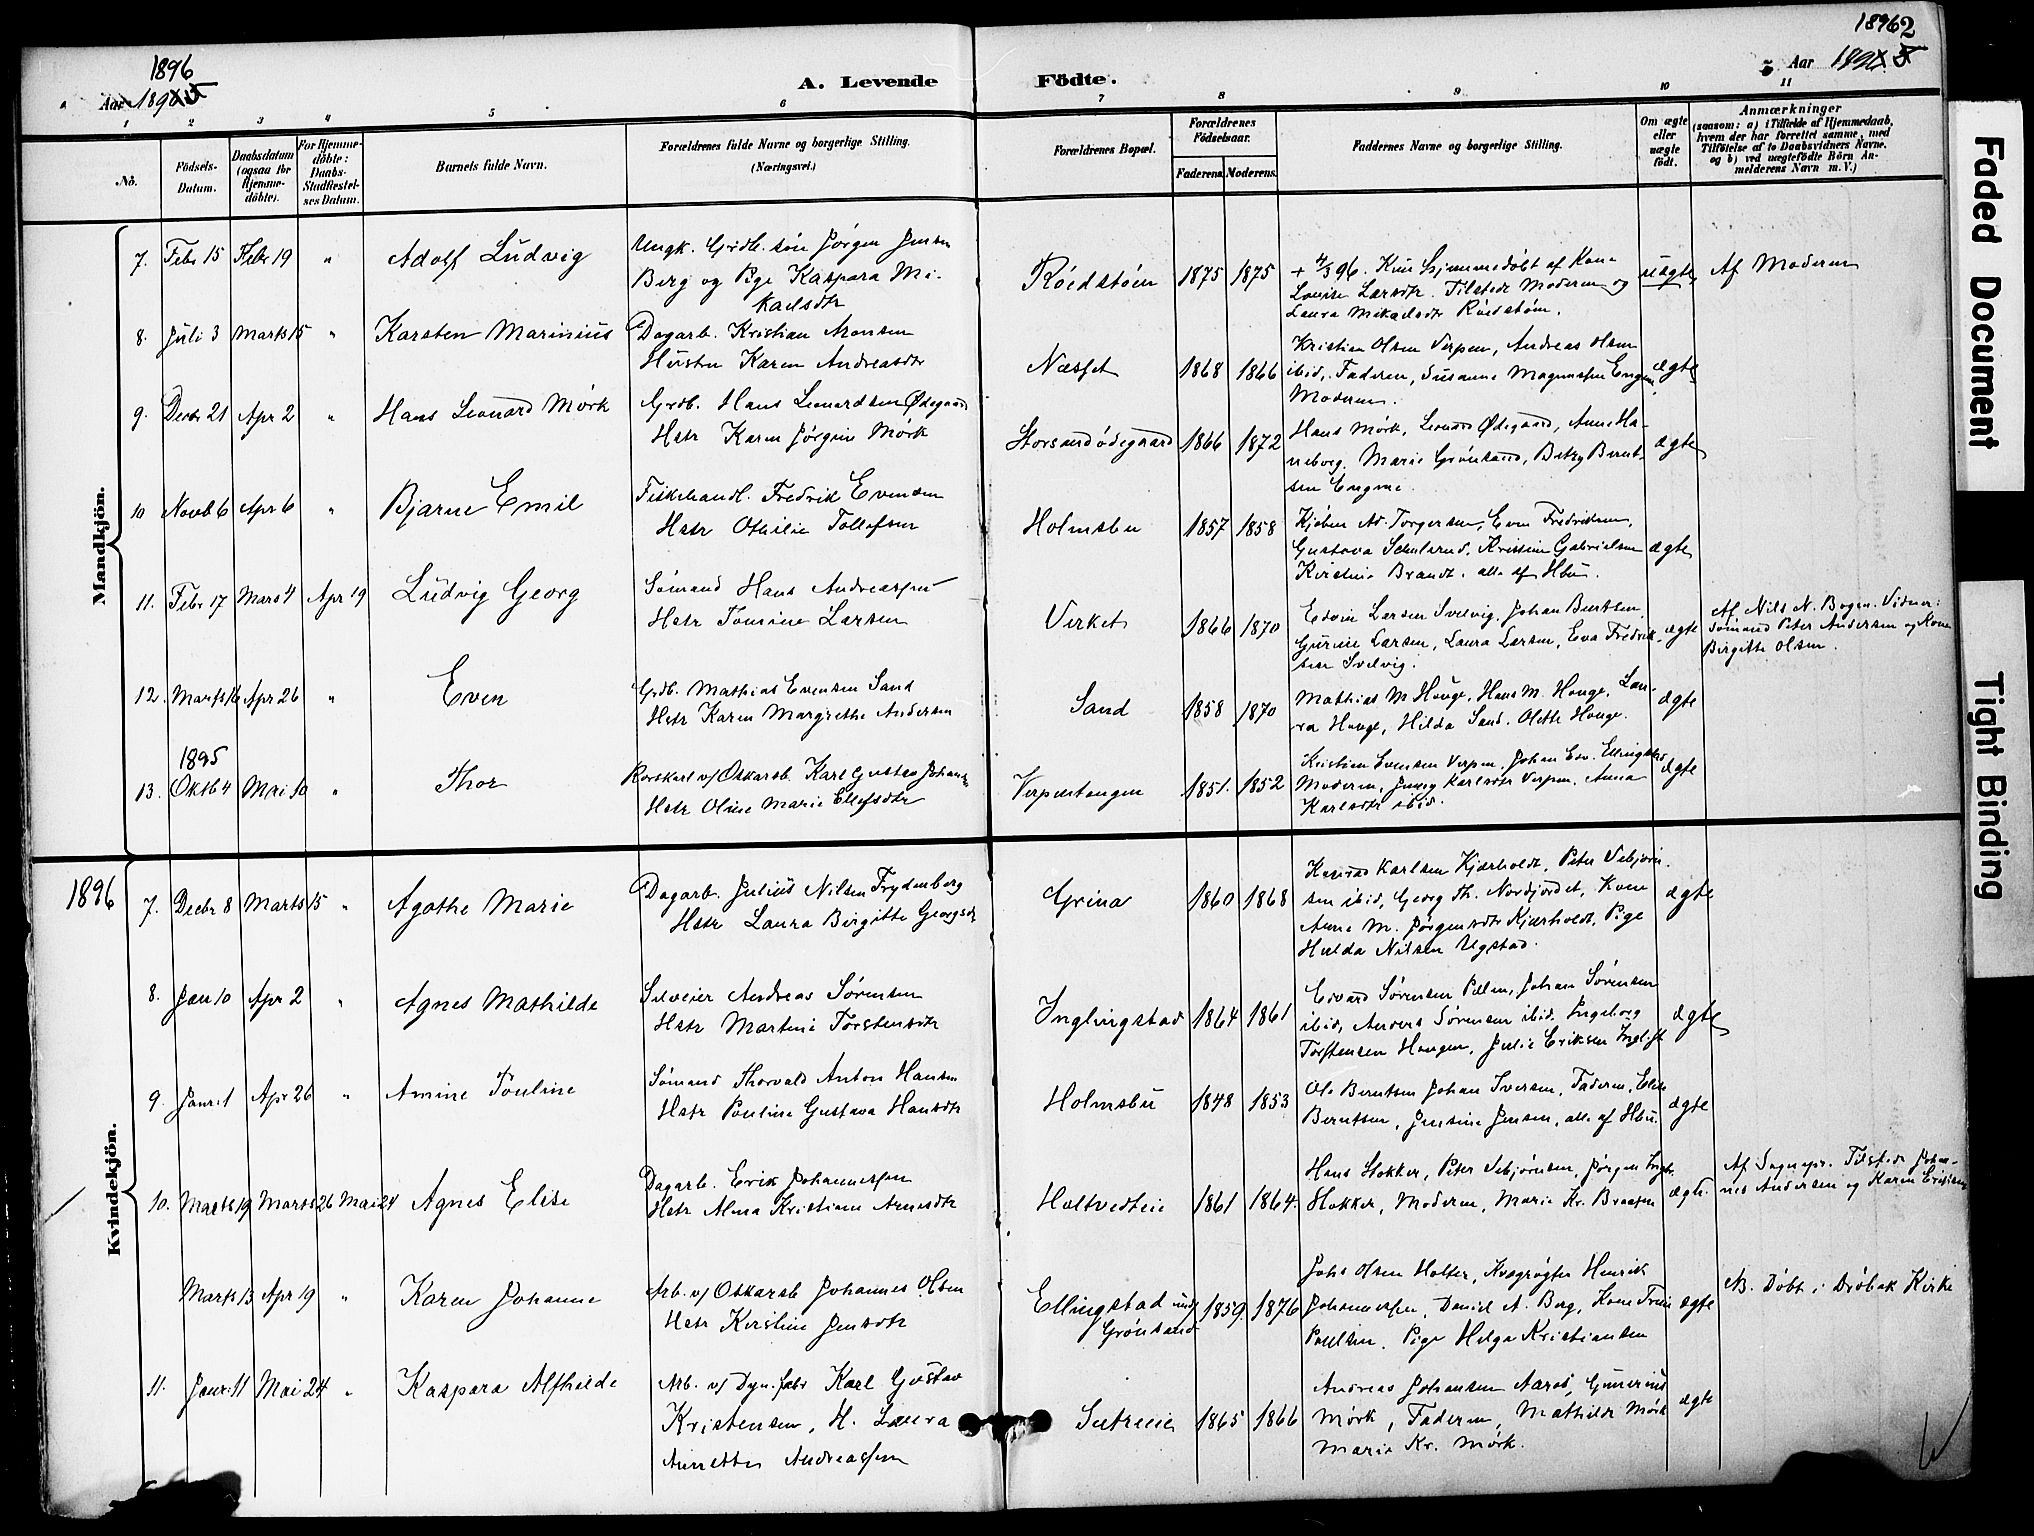 1896
Aar 189
A. Levende
Födte.
18962
Aar 189
1 2 3 4 5 6 7 8 9 10 11
No.
Födsels-
Datum.
Daabsdatum
(ogsaa for
Hjemme-
döbte).
For Hjemme-
döbte:
Daabs-
Stadfæstel-
ses Datum.
Barnets fulde Navn.
Forældrenes fulde Navne og borgerlige Stilling.
(Næringsvei.)
Forældrenes Bopæl.
Forældrenes
Födselsaar.
Faderens.
Moderens.
Faddernes Navne og borgerlige Stilling.
Om ægte
eller
uægte
födt.
Anmærkninger
(saasom: a) i Tilfælde af Hjemmedaab,
hvem der har forrettet samme, med
Tilföielse af to Daabsvidners Navne,
og b) ved uægtefödte Börn An-
melderens Navn m. V.)
Mandkjön.
7. Febr 15 Febr 19 " Adolf Ludvig
Ungk. Grdb. søn Jørgen Jensen
Berg og Pige Kaspara Mi-
kaelsdtr
Røedstøen 1875 1875
+ 4/3 96. Kun hjemmedøbt af Kone
Louise Larsdtr. Tilstede Moderen og
Laura Mikaelsdtr Røedstøen.
uægte Af Moderen
8. Juli 3 Marts 15 " Karsten Marinius
Dagarb. Kristian Monsen
Hustru Karen Andreasdtr
Næsset 1868 1866
Kristian Olsen Verpen, Andreas Olsen
ibid., Faderen, Susanne Magnussen Engen,
Moderen.
ægte
9. Decbr 21 Apr 2 " Hans Leonard Mørk
Grdb. Hans Leonardsen Ødegaard
Hstr Karen Jørgine Mørk
Storsandødegaard 1866 1872
Hans Mørk, Leonard Ødegaard, Anne Ha-
neborg, Marie Grønsand, Betzy Bernt-
sen Engene.
ægte
10 Novb 6 Apr 6 " Bjarne Emil
Fiskehandl. Fredrik Evensen
Hstr Othilie Tollefsen
Holmsbu 1857 1858
Kjøbm Ad. Torgersen, Even Fredriksen,
Gustava Schulerud, Kristine Gabrielsen
Kirstine Brandt, alle af Hbu.
ægte
11. Febr 17 Mars 4 Apr 19 Ludvig Georg
Sømand Hans Andreassen
Hstr Tomine Larsen
Verket 1866 1870
Edvin Larsen Svelvig, Johan Berntsen,
Gurine Larsen, Laura Larsen, Eva Fredrik-
sen Svelvig.
ægte
Af Nils N. Bogen. Vidner:
Sømand Peter Andersen og Kone
Birgitte Olsen.
12. Marts 16 Apr 26 " Even
Grdb. Mathias Evensen Sand
Hstr Karen Margrethe Andersen
Sand 1858 1870
Mathias M Houge, Hans M. Houge, Lau-
ra Houge, Hilda Sand, Olette Houge.
ægte
1895
13. Oktb 4 Mai 10 " Thor
Rorskarl v/ Oskarsb. Karl Gustav Johansen
Hstr Oline Marie Ellefsdtr
Verpentangen 1851. 1852
Kristian Evensen Verpen, Johan Edv. Ellingstad
Moderen, Jenny Karlsdtr Verpen, Anna
Karlsdtr ibid.
ægte
1896
Kvindekjön.
7. Decbr 8 Marts 15 " Agathe Marie
Dagarb. Julius Nilsen Frydenberg
Hstr Laura Birgitte Georgsdtr
Grina 1860 1868
Konrad Karlsen Kjærholdt, Peter Vebjørn-
sen ibid, Georg Th. Nordjordet, Kone
Anne M. Jørgensdtr Kjærholdt, Pige
Hulda Nilsen Ugstad.
ægte
8. Jan 10 Apr 2 " Agnes Mathilde
Selveier Andreas Sørensen
Hstr Martine Torstensdtr
Inglingstad 1864 1861
Edvard Sørensen Pollen, Johan Sørensen
ibid, Anders Sørensen ibid. Ingeborg
Torstensen Haugen, Julie Eriksen Ingl.st
ægte
9. Janr. 1 Apr 26 " Amine Pouline
Sømand Thorvald Anton Hansen
Hstr Pouline Gustava Hansdtr
Holmsbu 1848 1853
Ole Berntsen Johan Iversen, Faderen, Elise
Berntsen, Jensine Jensen, alle af Hbu.
ægte
10. Marts 19 Marts 26 Mai 24 Agnes Elise
Dagarb. Erik Johannessen
Hstr Alma Kristiane Arnesdtr
Holtvedteie 1861 1864.
Hans Stokker, Peter Vebjørnsen, Jørgen Ingbr.
Stokker, Moderen, Marie Kr. Braaten
ægte.
Af Sognepr. Tilstede Johan-
nes Andersen og Karen Eriksen
Marts 13 Apr 19 " Karen Johanne
Arb. v/ Oskarsb Johannes Olsen
Hstr Kirstine Jensdtr
Ellingstad und.
Grønsand
1859. 1876
Johs Olsen Holter, Kvægrøgter Henrik
Johannessen, Daniel A. Berg, Kone Trine
Paulsen. Pige Helga Kristiansen
ægte
NB. Døbt i Drøbak Kirke
11. Janr. 11 Mai 24 " Kaspara Alfhilde
Arb. v/ Dyn. fabr Karl Gustav
Kristensen, H. Laura
Annette Andreassen
Sætreeie 1865 1866
Andreas Johansen Aarøs, Gunerius
Mørk, Faderen, Mathilde Mørk
Marie Kr. Mørk.
ægte
Faded Document
Tight Binding